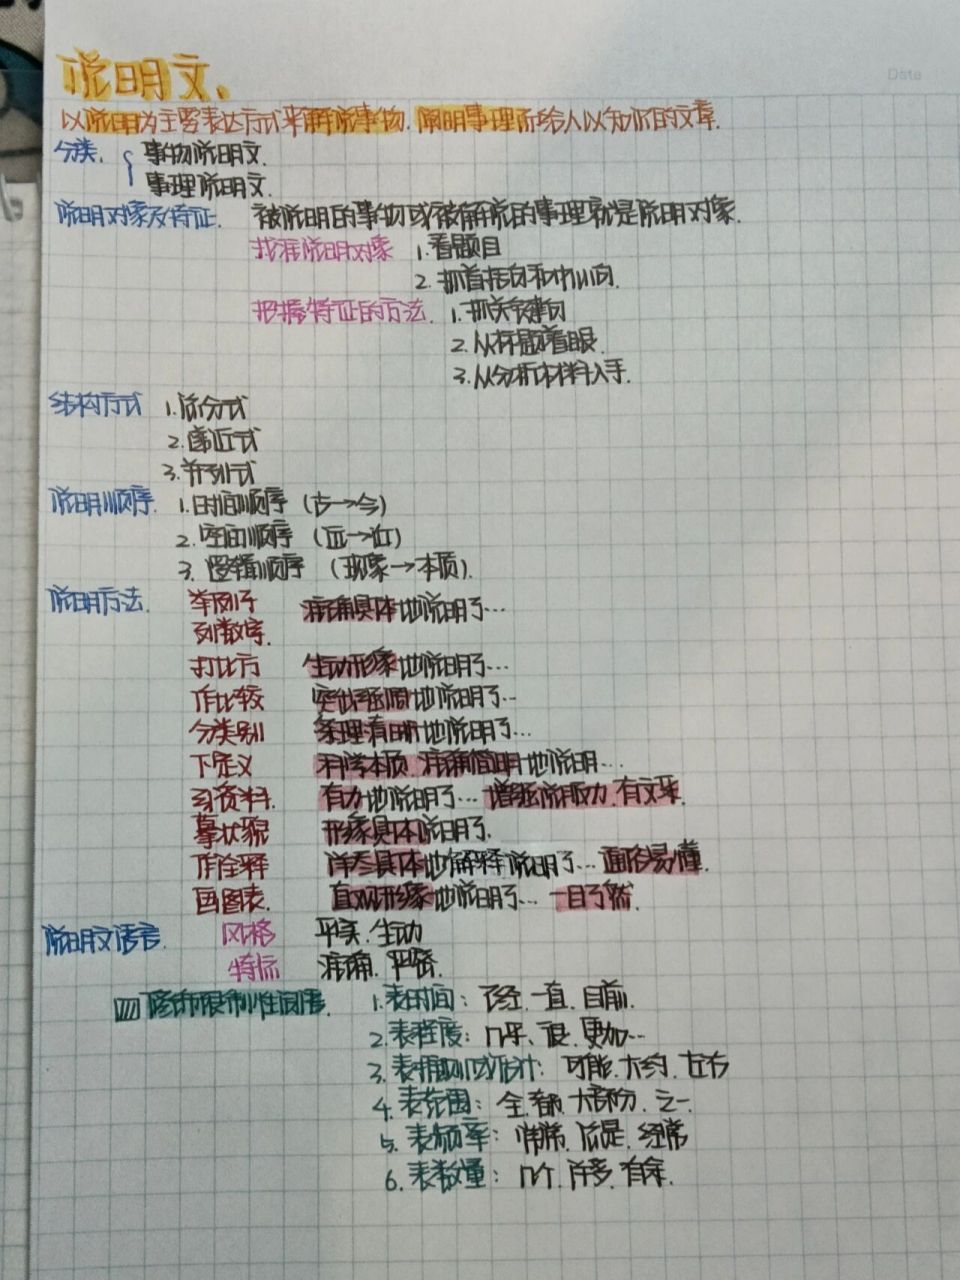 Date
说明文、
以说明为主要表达方式来解说事物、阐明事理而给人以知识的文章.
分类、 事物说明文.
事理说明文.
说明对象及特征. 被说明的事物或被解说的事理就是说明对象.
找准说明对象 1.看题目
2.抓首括句和中心句.
把握特征的方法. 1.抓关键句
2.从标题着眼.
3.从分析材料入手.
结构方式 1.总分式
2.递近式
3.并列式
说明顺序. 1.时间顺序 (古→今)
2.空间顺序 (远→近)
3.逻辑顺序 (现象→本质).
说明方法. 举例子 准确具体地说明了…
列数字.
打比方 生动形象地说明了…
作比较 突出强调地说明了…
分类别 条理清晰地说明了…
下定义 科学本质.准确简明地说明…
引资料. 有力地说明了…增强说服力.有文采.
摹状貌 形象具体说明了.
作诠释 详尽具体地解释说明了…通俗易懂.
画图表. 直观形象地说明了…一目了然.
说明文语言. 风格 平实.生动
特点 准确.严密.
修饰限制性词语. 1.表时间：已经.一直.目前.
2.表程度：几乎、很.更加…
3.表推测或估计：可能.大约.左右
4.表范围：全.都.大部分.之一.
5.表频率：常常.总是.经常
6.表数量：几个.许多.有余.